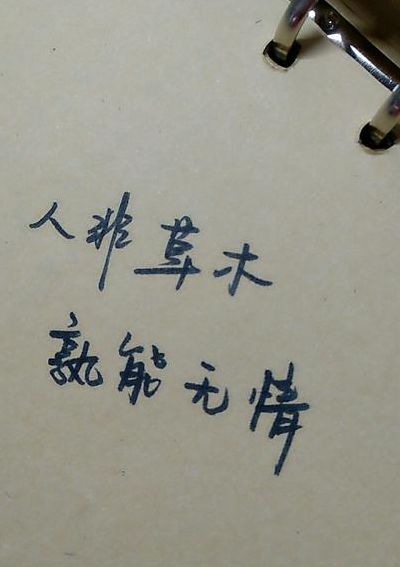 人非草木
孰能无情